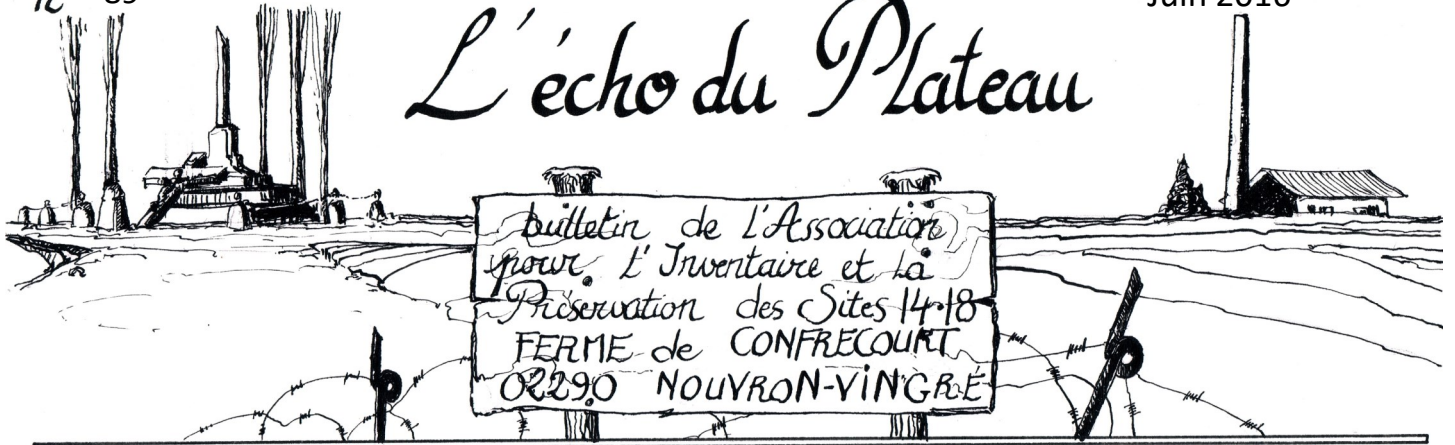 L'écho du Plateau
bulletin de l'Association
pour l'Inventaire et la
Préservation des Sites 14.18
FERME de CONFRECOURT
02290 NOUVRON-VINGRÉ